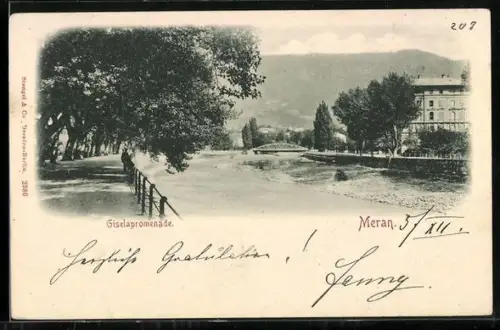 208
Stengel & Co., Dresden-Berlin. 2380
Giselapromenade.
Meran. 5/XII.
Herzliche Gratulation!
Jenny